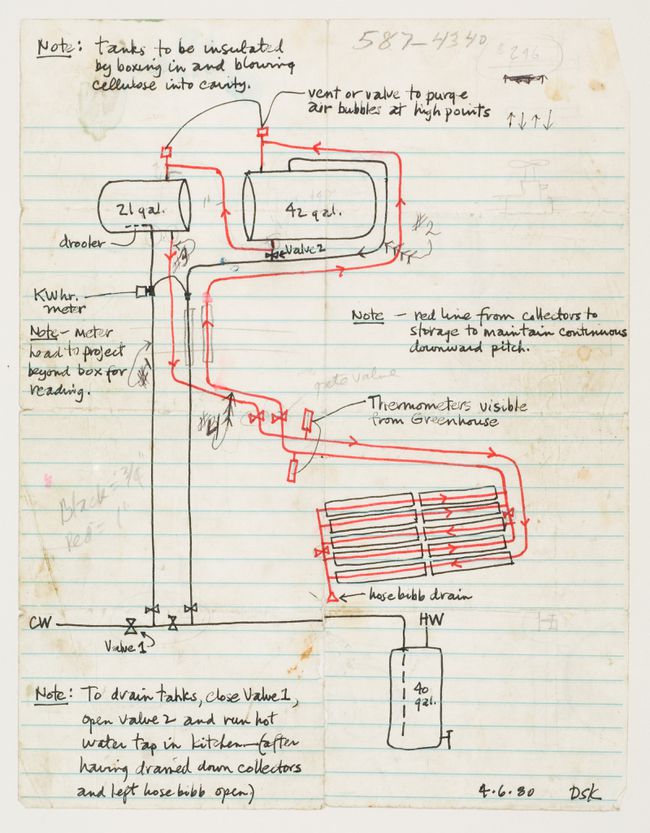 587-4340
$296
Note: tanks to be insulated
by boxing in and blowing
cellulose into cavity.
vent or valve to purge
air bubbles at high points
21 gal.
42 gal.
drooler
Valve 2
#2
KWhr.
meter
Note - meter
head to project
beyond box for
reading.
Note - red line from collectors to
storage to maintain continuous
downward pitch.
gate valve
Thermometers visible
from Greenhouse
Black = 3/4"
red = 1"
hose bibb drain
CW
Valve 1
HW
40
gal.
Note: To drain tanks, close Valve 1,
open valve 2 and run hot
water tap in kitchen - (after
having drained down collectors
and left hose bibb open.)
4.6.80 DSK